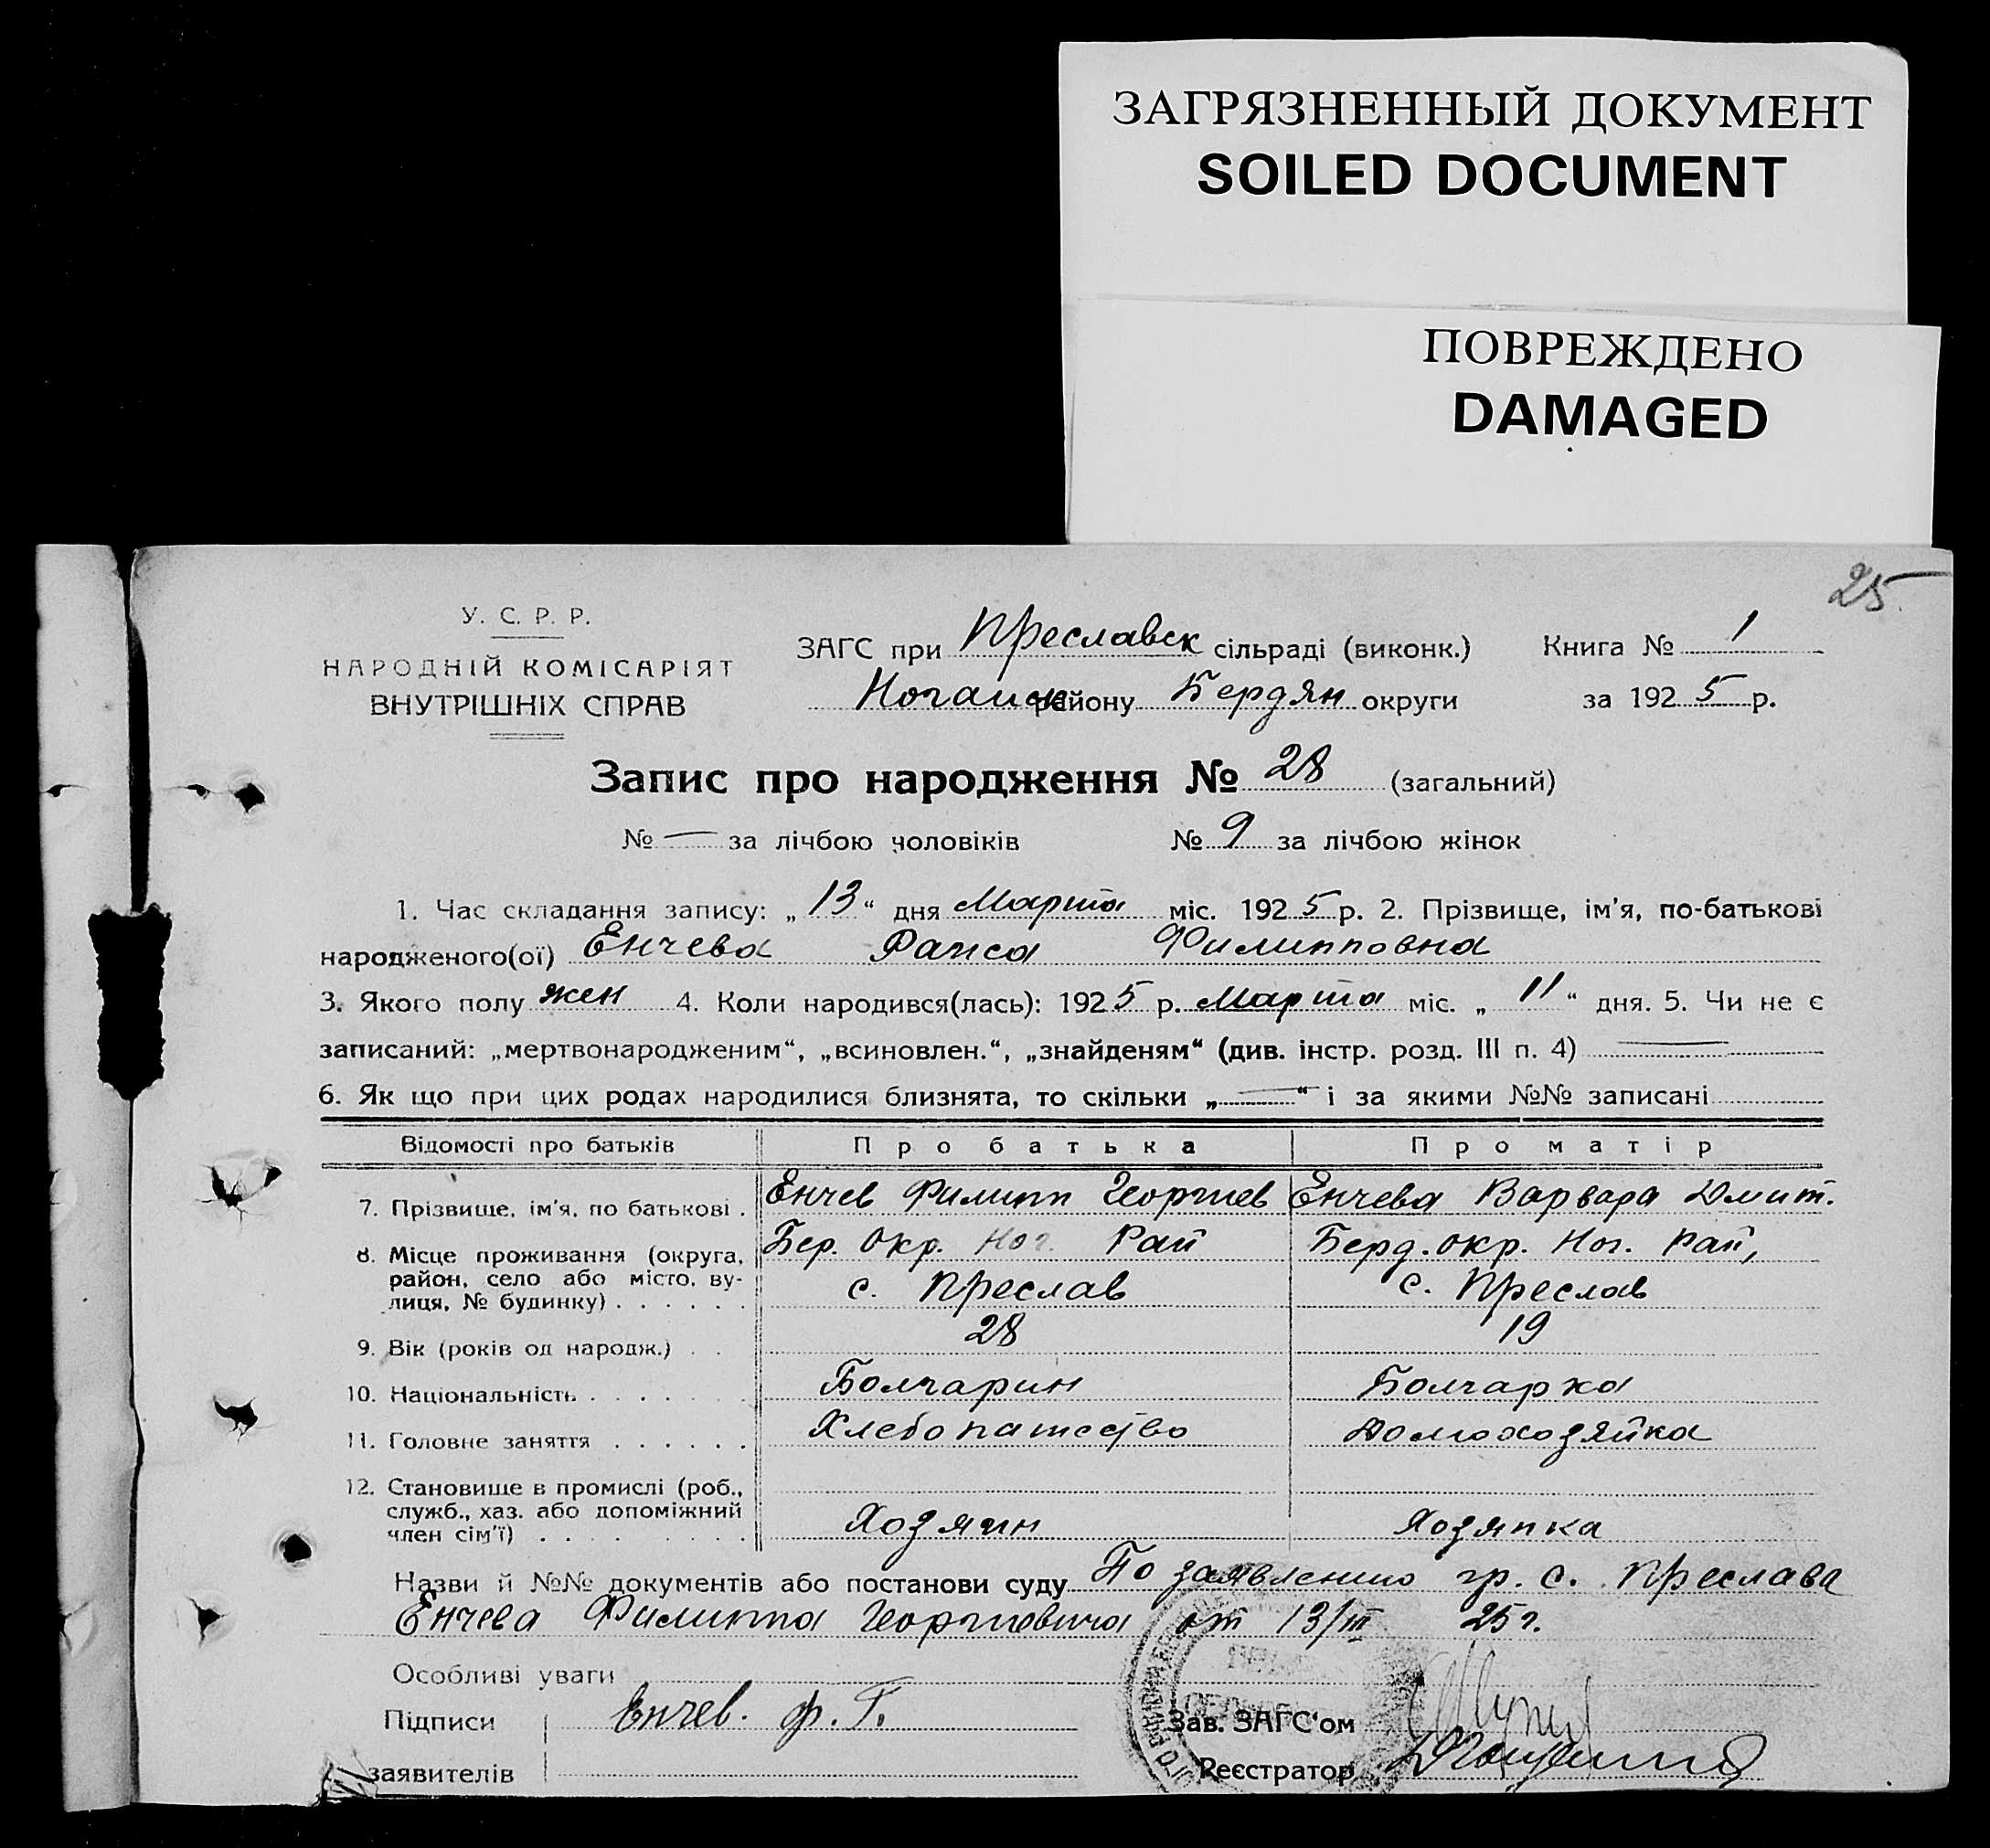 ЗАГРЯЗНЕННЫЙ ДОКУМЕНТ
SOILED DOCUMENT
ПОВРЕЖДЕНО
DAMAGED
25
У. С. Р. Р.
НАРОДНІЙ КОМІСАРІЯТ
ВНУТРІШНІХ СПРАВ
ЗАГС при Преславск сільраді (виконк.) Книга № 1
Ногайск району Бердян округи за 1925 р.
Запис про народження № 28 (загальний)
№ — за лічбою чоловіків № 9 за лічбою жінок
1. Час складання запису: „13“ дня Марта міс. 1925 р. 2. Прізвище, ім’я, по-батькові
народженого(ої) Енчева Раиса Филипповна
3. Якого полу жен 4. Коли народився(лась): 1925 р. Марта міс. „11“ дня. 5. Чи не є
записаний: „мертвонародженим“, „всиновлен.“, „знайденям“ (див. інстр. розд. III п. 4) —
6. Як що при цих родах народилися близнята, то скільки „—“ і за якими №№ записані
Відомості про батьків Про батька Про матір
7. Прізвище, ім’я, по батькові . Енчев Филипп Георгиев Енчева Варвара Дмит.
8. Місце проживання (округа, Бер. Окр. Ног. Рай Берд. окр. Ног. Рай,
район, село або місто, ву- с. Преслав с. Преслав
лиця, № будинку) . . . . . .
9. Вік (років од народж.) . . 28 19
10. Національність . . . . . Болгарин Болгарка
11. Головне заняття . . . . . . Хлебопашество Домохозяйка
12. Становище в промислі (роб.,
служб., хаз. або допоміжний
член сім’ї) . . . . . Хозяин Хозяйка
Назви й №№ документів або постанови суду По заявлению гр. с. Преслава
Енчева Филиппа Георгиевича от 13/III 25 г.
Особливі уваги
Підписи Енчев. Ф. Г. Зав. ЗАГС‘ом
заявителів Реєстратор